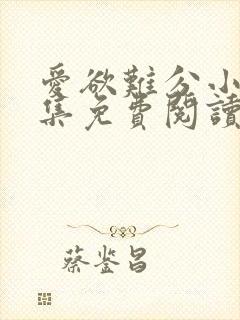 愛欲難分小
集免費閱讀
蔡鉴昌